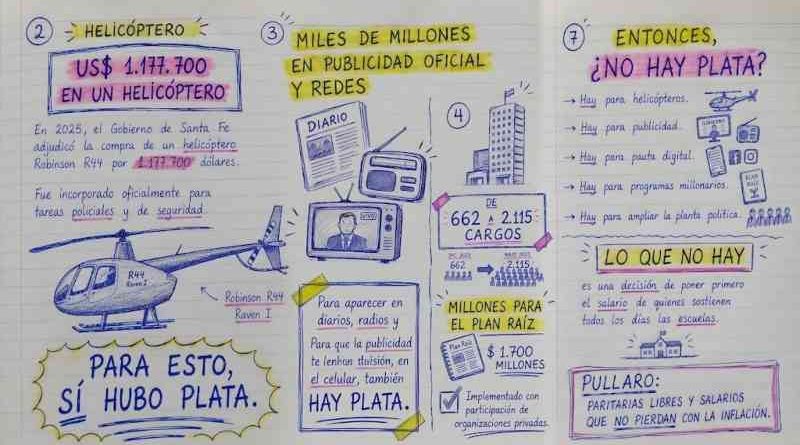 2 HELICÓPTERO
US$ 1.177.700
EN UN HELICÓPTERO
En 2025, el Gobierno de Santa Fe
adjudicó la compra de un helicóptero
Robinson R44 por 1.177.700 dólares.
Fue incorporado oficialmente para
tareas policiales y de seguridad
R44
Raven I
Robinson R44
Raven I
PARA ESTO,
SÍ HUBO PLATA.
3 MILES DE MILLONES
EN PUBLICIDAD OFICIAL
Y REDES
DIARIO
VIVO
Para aparecer en
diarios, radios y
Para que la publicidad
el celular, también
HAY PLATA.
4
DE
662 a 2.115
CARGOS
662
2.115
MILLONES PARA
EL PLAN RAÍZ
Plan Raíz
$ 1.700
MILLONES
Implementado con
participación de
organizaciones privadas.
7 ENTONCES,
¿NO HAY PLATA?
→ Hay para helicópteros.
→ Hay para publicidad.
→ Hay para pauta digital.
→ Hay para programas millonarios.
→ Hay para ampliar la planta política.
LO QUE NO HAY
es una decisión de poner primero
el salario de quienes sostienen
todos los días las escuelas.
PULLARO:
PARITARIAS LIBRES Y SALARIOS
QUE NO PIERDAN CON LA INFLACIÓN.